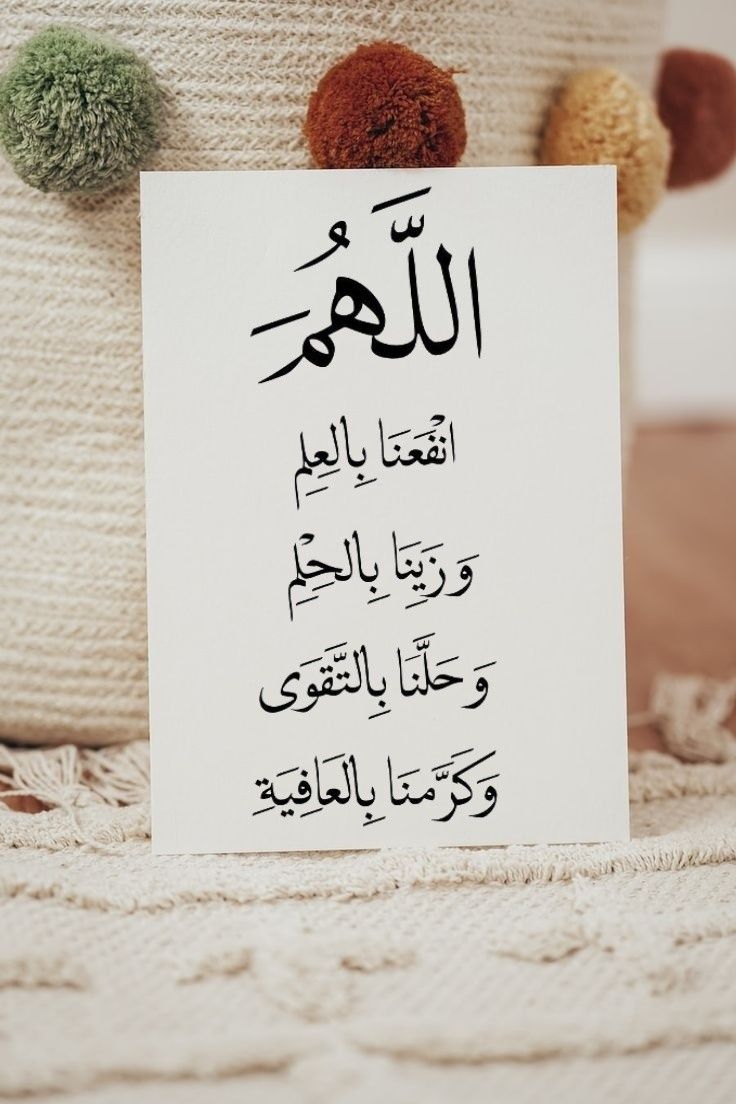 اللَّهُمَ
انْفَعَنَا بِالعِلِمِ
وَ زَيِنِا بِالحِلْمِ
وَ حَلَّنَا بِالتَّقوَى
وَكَرَّمنَا بِالعَافِيَةِ